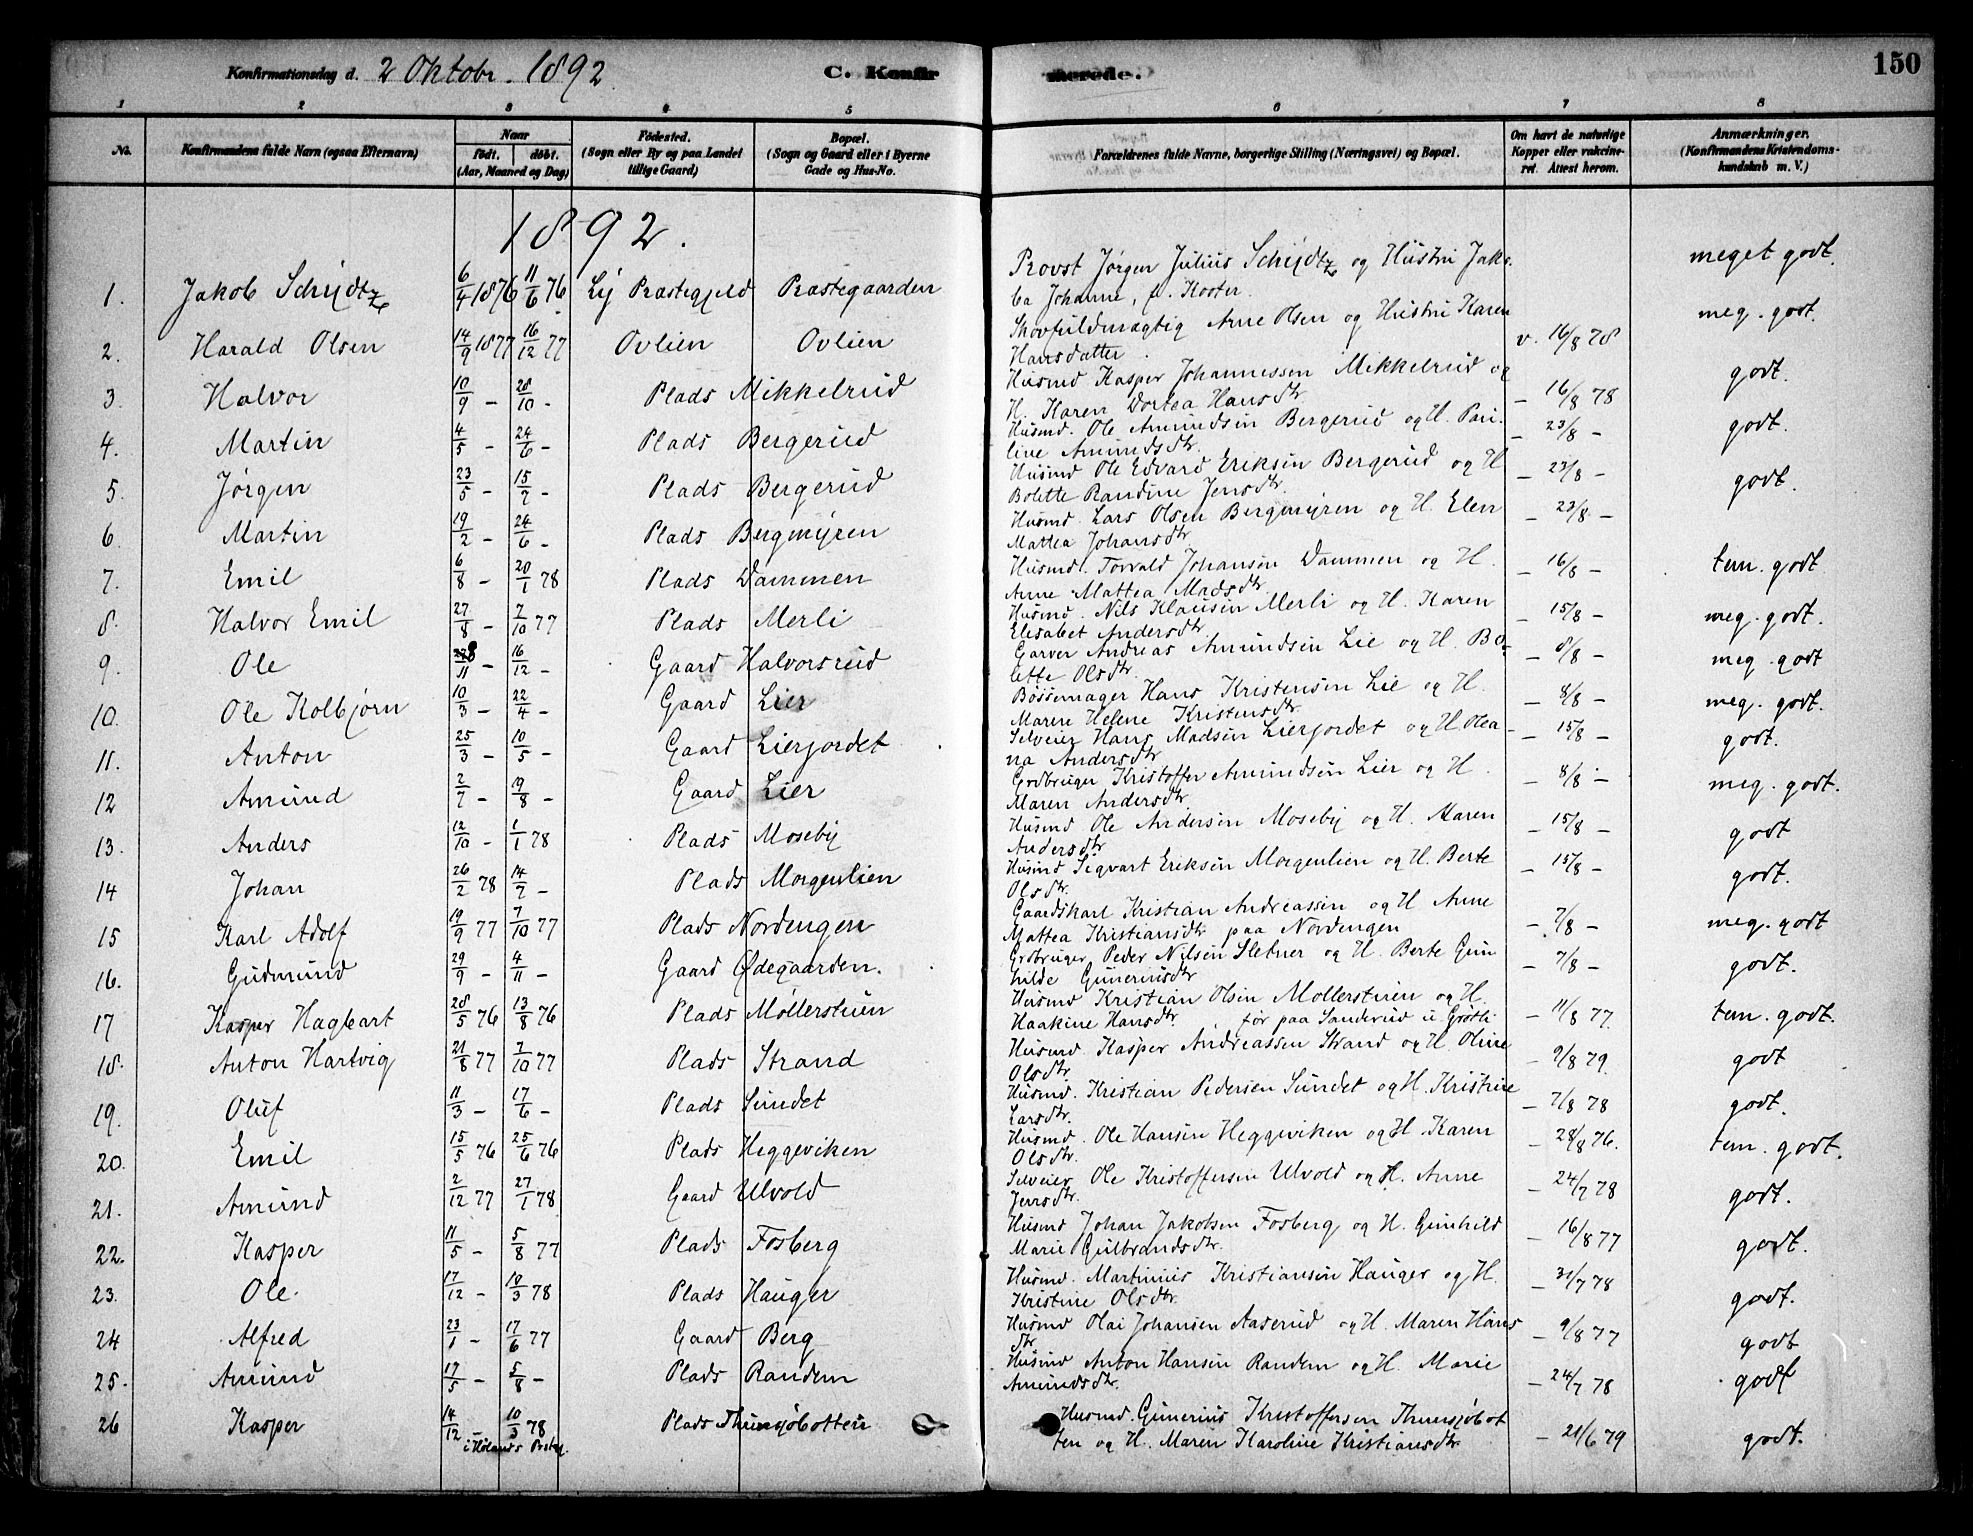 Konfirmationsdag d. 2 Oktobr. 1892 C. Konfirmerede. 150
1 2 3 4 5 6 7 8
No. Konfirmandens fulde Navn (ogsaa Efternavn) Naar födt. döbt. (Aar, Maaned og Dag) Födested. (Sogn eller By og paa Landet tillige Gaard) Bopæl. (Sogn og Gaard eller i Byerne Gade og Hus-No. Forældrenes fulde Navne, borgerlige Stilling (Næringsvei) og Bopæl. Om havt de naturlige Kopper eller vakcineret. Attest herom. Anmærkninger. (Konfirmandens Kristendomskundskab m. V.)
1892.
1. Jakob Schijdtz 6/4 1876 11/6 76 Præstegjeld Præstegaarden Provst Jørgen Julius Schijdtz og Hustru Jakoba Johanne, f. Koster. meget godt.
2. Harald Olsen 14/9 1877 16/12 77 Ovlien Ovlien Skovfuldmægtig Arne Olsen og Hustru Karen Hansdatter. v. 16/8 78 meg. godt.
3. Halvor 10/9 - 28/10 - Plads Mikkelrud Husmd Kasper Johannessen Mikkelrud og H. Karen Dortea Hansdtr. - 16/8 78 godt.
4. Martin 4/5 - 24/6 - Plads Bergerud Husmd. Ole Amundsen Bergerud og H. Pauline Amundsdtr. - 23/8 - godt.
5. Jørgen 23/5 - 15/7 - Plads Bergerud Husmd Ole Edvard Eriksen Bergerud og H Bolette Randine Jensdtr. - 23/8 - godt.
6. Martin 19/2 - 24/6 - Plads Bergmyren Husmd. Lars Olsen Bergmyren og H. Elen Mattea Johansdtr. - 23/8 -
7. Emil 6/8 - 20/1 78 Plads Dammen Husmd. Torvald Johansen Dammen og H. Anne Mattea Madsdtr. - 16/8 - tem. godt
8. Halvor Emil 27/8 - 7/10 77 Plads Merli Husmd. Nils Klausen Merli og H. Karen Elisabet Andersdtr. - 15/8 - meg. godt.
9. Ole /11 - 16/12 - Gaard Halvorsrud Garver Andreas Amundsen Lie og H. Bolette Olsdtr. - 8/8 - meg. godt
10. Ole Kolbjørn 10/3 - 22/4 - Gaard Lier Bøssemager Hans Kristensen Lie og H. Maren Helene Kristensdtr. - 8/8 - meg. godt.
11. Anton 25/3 - 10/5 - Gaard Lierjordet Selveier Hans Madsen Lierjordet og H. Oleana Andersdtr - 15/8 - godt.
12 Amund 2/7 - 19/8 - Gaard Lier Grdbruger Kristoffer Amundsen Lier og H. Maren Andersdtr - 8/8 - meg. godt.
13. Anders 12/10 - 1/1 78 Plads Moseby Husmd Ole Andersen Moseby og H. Karen Andersdtr - 15/8 - godt
14 Johan 26/2 78 14/7 - Plads Morgenlien Husmd Sigvart Eriksen Morgenlien og H. Berte Olsdtr. - 15/8 - godt.
15 Karl Adolf 19/9 77 7/10 77 Plads Nordengen Gaardskarl Kristian Andreassen og H Anne Mattea Kristiansdtr paa Nordengen - 7/8 - meg. godt
16. Gudmund 29/9 - 4/11 - Gaard Ødegaarden. Grdbruger Peder Nilsen Sletner og H. Berte Gunhilde Guneriusdtr - 7/8 - godt.
17 Kasper Hagbart 28/5 76 13/8 76 Plads Møllerstuen Husmd Kristian Olsen Møllerstuen og H. Haakine Hansdtr. før paa Sanderud - 11/8 77. tem. godt.
18. Anton Hartvig 21/8 77 7/10 77 Plads Strand Husmd Kasper Andreassen Strand og H. Oline Olsdtr. - 9/8 79. godt
19. Oluf 11/3 - 17/6 - Plads Sundet Husmd. Kristian Pedersen Sundet og H. Kristine Larsdtr. - 7/8 78 godt.
20. Emil 15/5 76 25/6 76 Plads Heggeviken Husmd. Ole Hansen Heggeviken og H. Karen Olsdtr. - 28/8 76. tem. godt.
21. Amund 2/12 77 27/1 78 Gaard Ulvold Selveier Ole Kristoffersen Ulvold og H. Anne Jensdtr. - 24/7 78 godt.
22. Kasper 11/5 - 5/8 77 Plads Fosberg Husmd Johan Jakobsen Fosberg og H. Gunhild Marie Gulbrandsdtr. - 16/8 77 godt.
23. Ole. 17/12 - 10/3 78 Plads Hauger Husmd. Martinius Kristiansen Hauger og H. Kristine Olsdtr. - 31/7 78 godt.
24 Alfred 23/1 - 17/6 77 Gaard Berg Husmd Olai Johansen Aaserud og H. Maren Hansdtr. - 9/8 77 godt
25. Amund 17/5 - 5/8 - Plads Randem Husmd Anton Hansen Randem og H. Marie Amundsdtr. - 24/7 78 godt
26 Kasper 14/12 - 10/3 78 i Hølands Plads Husmd. Gunerius Kristoffersen og H. Maren Karoline Kristiansdtr. - 21/6 79 godt.